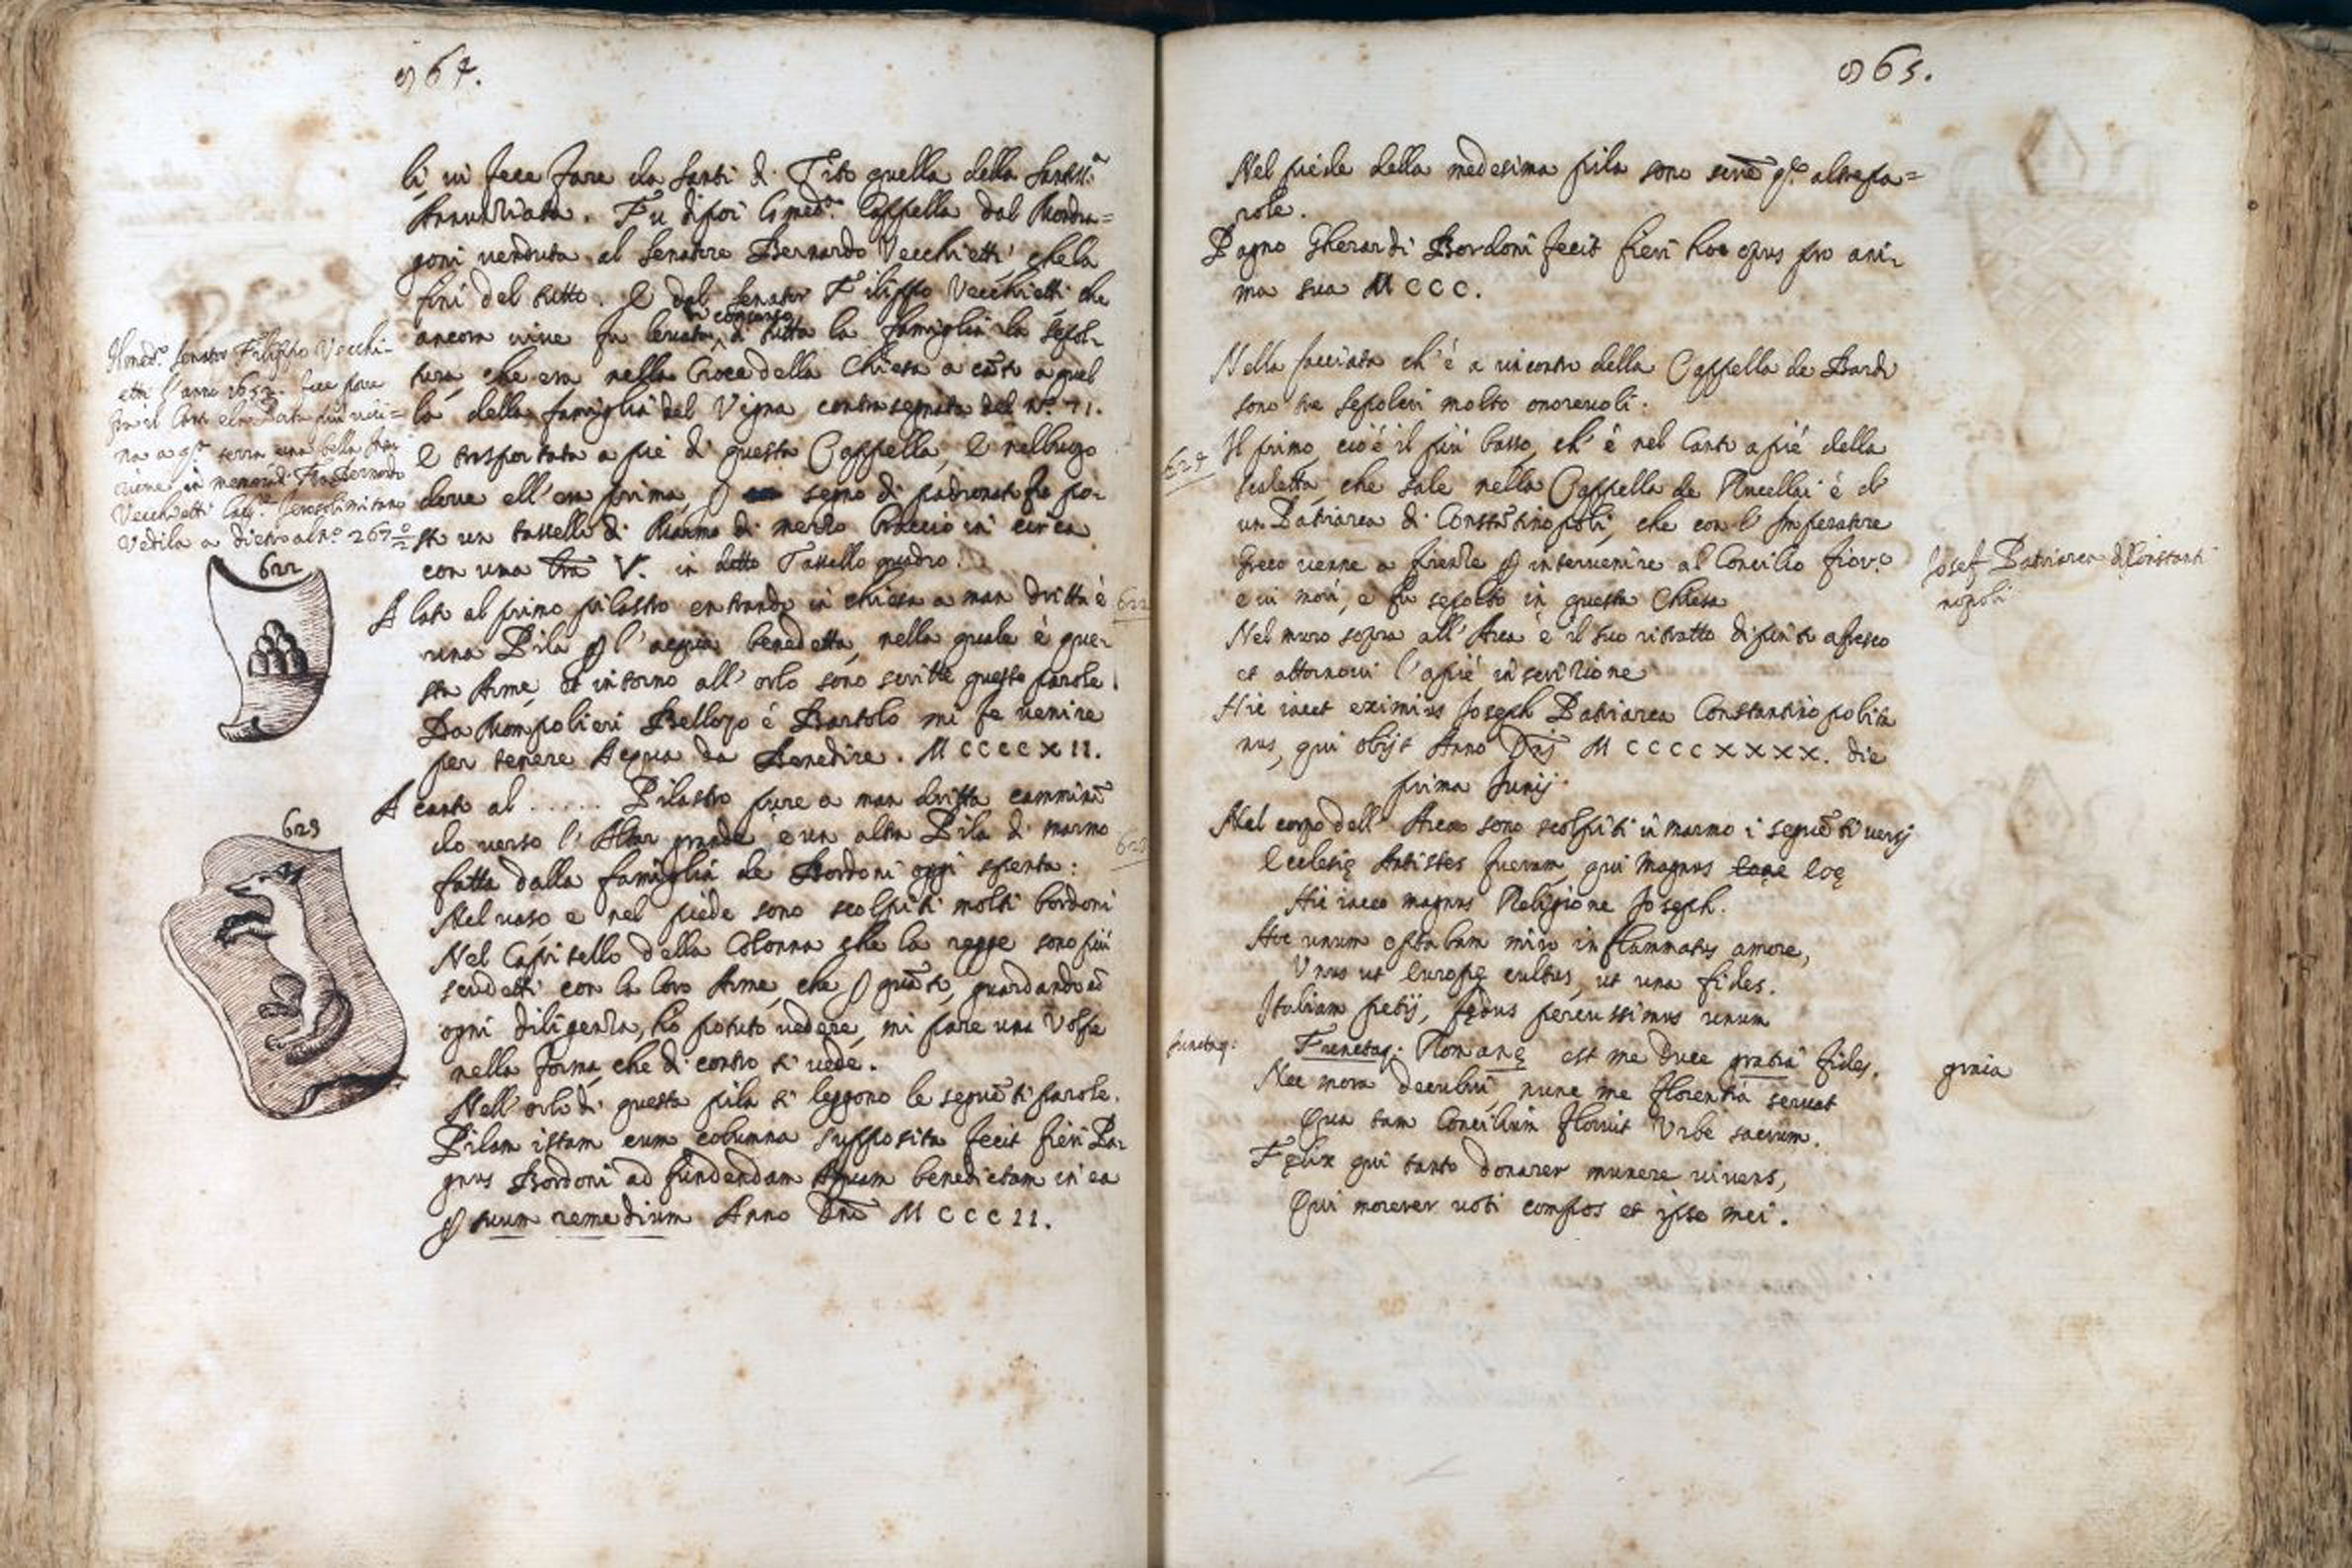 964.
li vi fece fare da Santi di Tito quella della Santiss.ª
Annunziata. Fu dipoi la med.ª Cappella dal Mondra=
goni venduta al Senatore Bernardo Vecchietti, che la
finì del tutto. E dal Senator Filippo Vecchietti che
in concorso
ancora vive fu levata, di tutta la famiglia la sepol-
tura, che era nella Croce della Chiesa a cãto a quel
la della famiglia del Vigna contrasegnata del N.º 71.
E trasportata a piè di questa Cappella, E nel luogo
dove ell'era prima, ꝑ segno di padronato fe po-
sta un tassello di Marmo di mezzo braccio in circa
con una V. in detto Tassello quadro.
Il med.º Senator Filippo Vecchi-
etti l'anno 1652. fece porre
fra il Canto e la Porta più vici=
na a q.ª terra una bella Inscri
zione in memoria di Fra Bernardo
Vecchietti Cav.re Jerosolimitano
Vedila a dietro al N.º 267
622
A lato al primo pilastro entrando in chiesa a man dritta è
622
una Pila ꝑ l'acqua benedetta, nella quale è que-
sta Arme, et intorno all'orlo sono scritte queste parole.
Da Mompolieri Bellozo é Bartolo mi fe venire
per tenere Acqua da Benedire. M CCCC XII.
A canto al ...... Pilastro pure a man dritta camminã
623
do verso l'Altar grande è un altra Pila di marmo
623
fatta dalla famiglia de Bordoni oggi spenta:
Nel vaso e nel piede sono scolpiti molti bordoni
Nel Capitello della Colonna che la regge sono più
scudetti con la loro Arme, che ꝑ quãto, guardando cõ
ogni diligenza, ho potuto vedere, mi pare una Volpe
nella forma, che di contro si vede.
Nell'orlo di questa pila si leggono le seguẽti parole.
Pilam istam cum columna supposita fecit fieri Pa-
gnus Bordoni ad fundendam Aquam benedictam in ea
ꝑ suum remedium Anno Dñi M CCC II.
965.
Nel piede della medesima pila sono altre pa=
role.
Pagno Gherardi Bordoni fecit fieri hoc opus pro ani-
ma sua M CCC.
Nella facciata ch'è a rincontro della Cappella de Bardi
sono tre sepolcri molto onorevoli.
624
Il primo, cioè il più basso, ch'è nel Canto a piè della
scaletta, che sale nella Cappella de Rucellai è d'
un Patriarca di Constãtinopoli, che con l'Imperatore
Greco venne a Firenze ꝑ intervenire al Concilio Fior.º
e vi morì, e fu sepolto in questa Chiesa
Josef Patriarca di Constanti
nopoli
Nel muro sopra all'Arca è il suo ritratto dipinto a fresco
et attornovi l'a piè inscrizione
Hic iacet eximius Joseph Patriarca Constantinopolita
nus, qui obijt Anno Dñj M CCCC XXXX. die
prima Junij.
Nel corpo dell'Arca sono scolpiti in marmo i seguẽti versj
Ecclesię Antistes fueram, qui magnus Eoę
Hic iaceo magnus Religione Joseph.
Hoc unum optabam miro inflammatus amore,
Vnus ut Europę cultus, ut una fides.
Italiam petij, fędus percussimus unum
Iunctaq: Romanę est me Duce gratia fides.
Iunctaq:
graia
Nec mora decubui, nunc me Florentia servat
Qua tum Concilium floruit Vrbe sacrum.
Fęlix qui tanto donarer munere vivens,
Qui morerer voti compos et ipse mei.